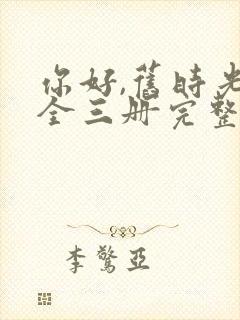 你好,舊時光
全三册完整
李驚亞